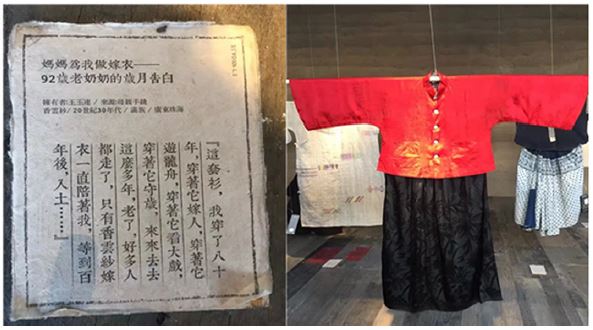 媽媽為我做嫁衣——
92歲老奶奶的歲月告白
擁有者:王玉連/來源:母親手織
香雲紗/20世紀30年代/滿族/廣東珠海
『這套衫,我穿了八十
年,穿著它嫁人,穿著它
遊龍舟,穿著它看大戲,
穿著它守歲,來來去去
這麼多年,老了,好多人
都走了,只有香雲紗嫁
衣一直陪著我,等到百
年後,入土……』